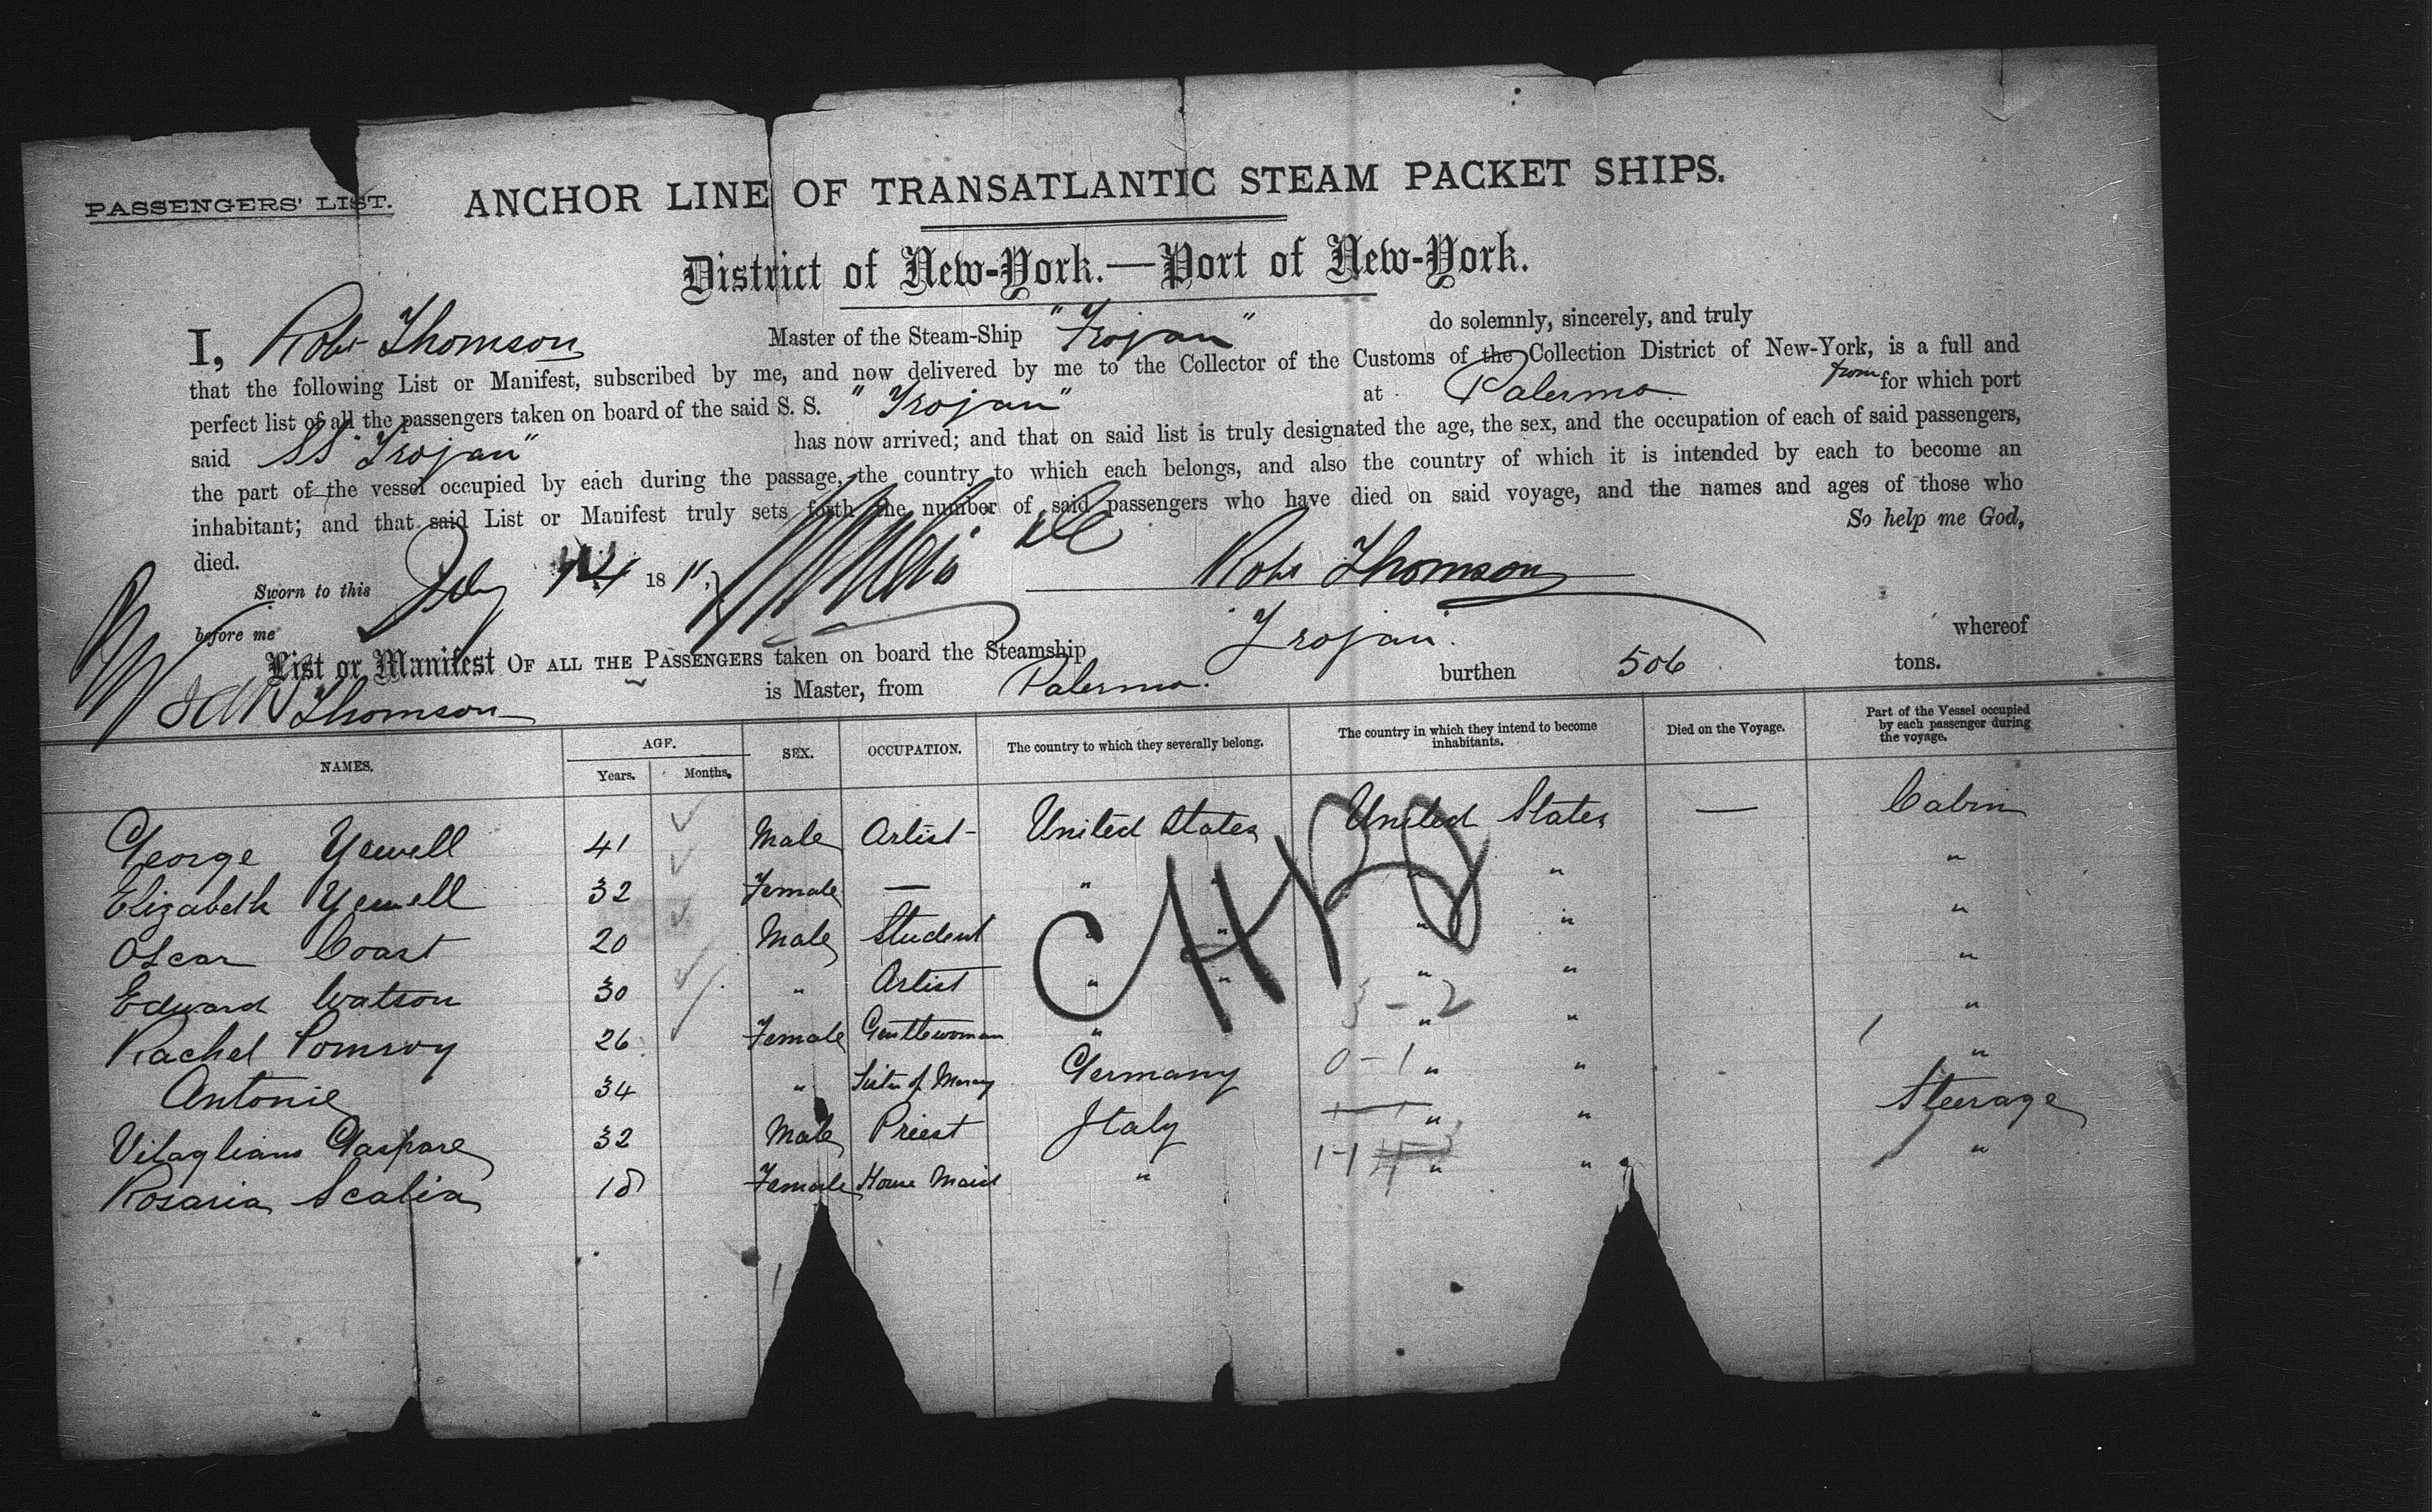 PASSENGERS' LIST. ANCHOR LINE OF TRANSATLANTIC STEAM PACKET SHIPS.
District of New-York.—Port of New-York.
I, Robt Thomson Master of the Steam-Ship "Trojan" do solemnly, sincerely, and truly
that the following List or Manifest, subscribed by me, and now delivered by me to the Collector of the Customs of the Collection District of New-York, is a full and
perfect list of all the passengers taken on board of the said S. S. "Trojan" at Palermo from for which port
said SS "Trojan" has now arrived; and that on said list is truly designated the age, the sex, and the occupation of each of said passengers,
the part of the vessel occupied by each during the passage, the country to which each belongs, and also the country of which it is intended by each to become an
inhabitant; and that said List or Manifest truly sets forth the number of said passengers who have died on said voyage, and the names and ages of those who
died. So help me God,
Sworn to this 14 18 Robt Thomson
before me
List or Manifest OF ALL THE PASSENGERS taken on board the Steamship Trojan. whereof
Thomson is Master, from Palermo. burthen 506 tons.
NAMES. AGE. Years. Months. SEX. OCCUPATION. The country to which they severally belong. The country in which they intend to become inhabitants. Died on the Voyage. Part of the Vessel occupied by each passenger during the voyage.
George Yewell 41 Male Artist United States United States — Cabin
Elizabeth Yewell 32 Female — " " " " "
Oscar Coast 20 Male Student " " " " "
Edward Watson 30 " Artist " " " " "
Rachel Pomroy 26 Female Gentlewoman " " " "
Antonie 34 " Sister of Mercy Germany " " "
Vitagliano Gaspare 32 Male Priest Italy " " Steerage
Rosaria Scalia 18 Female House Maid " " " "